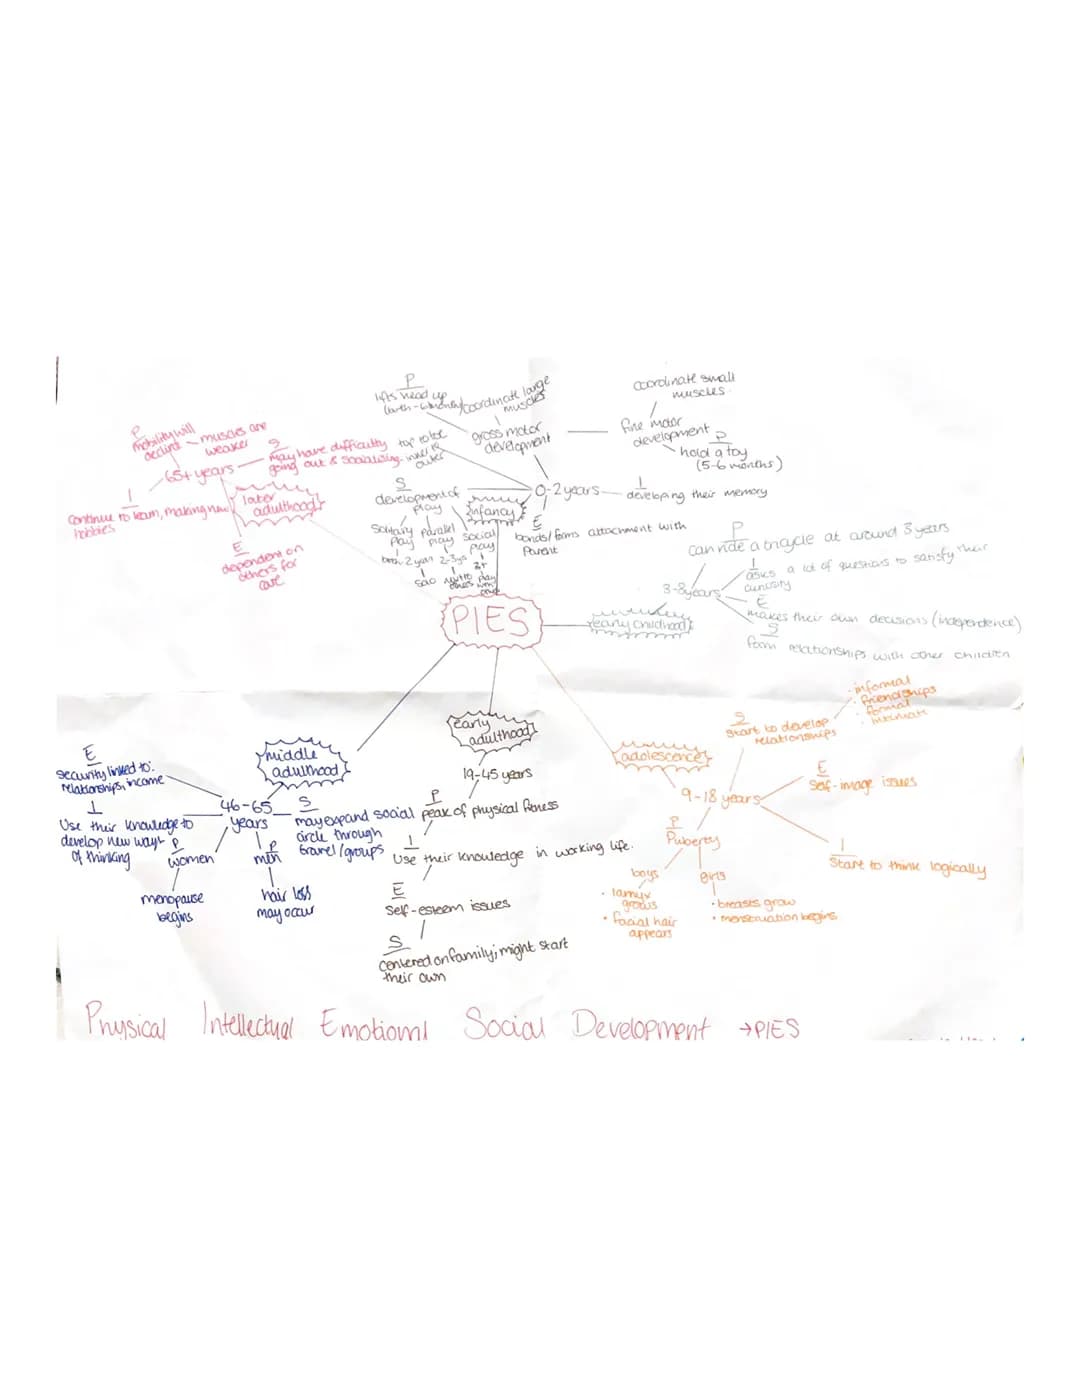 P
lifts head up
(birth-6 months)
coordinate large
muscles
gross motor
development
coordinate small
muscles.
fine motor
development
P
hold a toy
(5-6 months)
top to toe
inner to
outer
S
development of
play
infancy
0-2 years
I
developing their memory
E
bonds/forms attachment with
Parent
solitary
Play
parallel
play
social
play
birth-2 years
2-3 yrs
3+
solo
next to
others
play
with
others
P
mobility will
decline
muscles are
weaker
65+ years
S
may have difficulty
going out & socialising.
I
Continue to learn, making new
hobbies
later
adulthood
E
dependent on
others for
care
PIES
early childhood
3-8 years
P
can ride a tricycle at around 3 years
I
asks a lot of questions to satisfy their
curiosity
E
makes their own decisions (independence)
S
form relationships with other children
adolescence
9-18 years
S
Start to develop
relationships
· informal
· friendships
· formal
· intimate
E
Self-image issues
I
Start to think logically
P
Puberty
boys
• larnyx
grows
• facial hair
appears
girls
• breasts grow
• menstruation begins
early
adulthood
19-45 years
P
peak of physical fitness
I
Use their knowledge in working life.
E
Self-esteem issues
S
centered on family; might start
their own
middle
adulthood
46-65
years
E
security linked to:
relationships, income
I
Use their knowledge to
develop new ways
of thinking
P
women
menopause
begins
P
men
hair loss
may occur
S
may expand social
circle through
travel/groups
Physical Intellectual Emotional Social Development → PIES